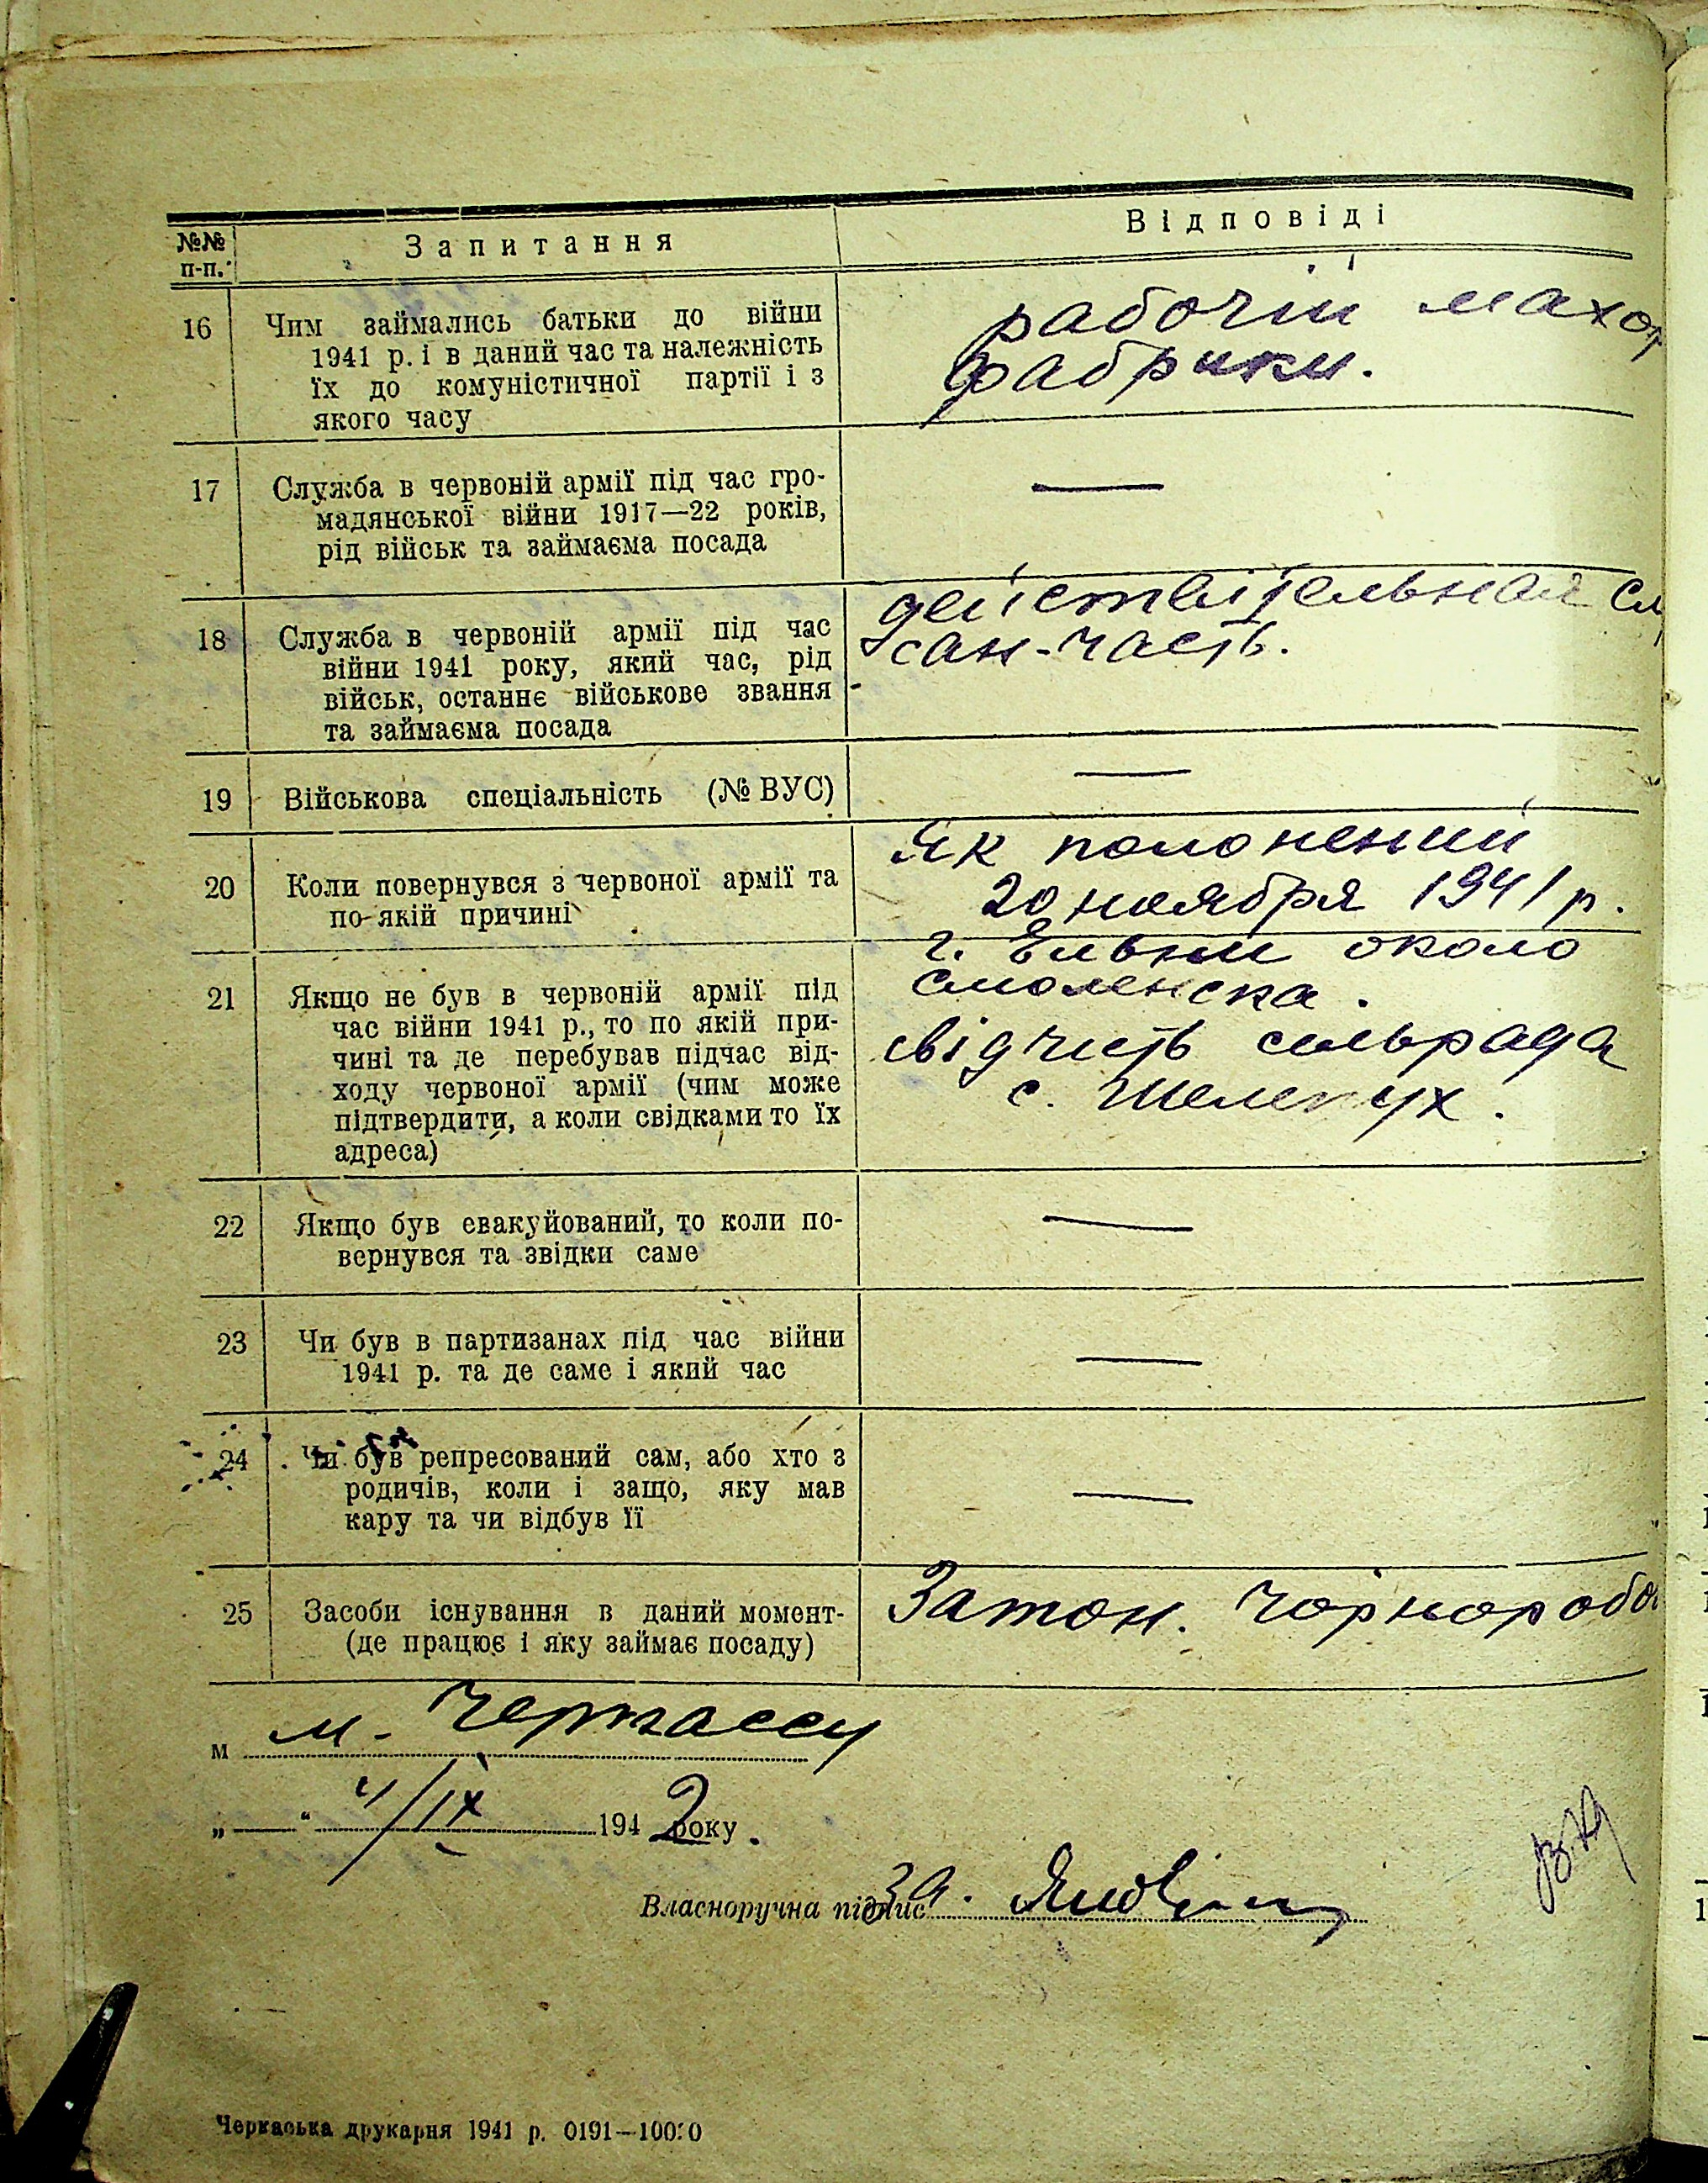 №№ п-п. Запитання Відповіді
16 Чим займались батьки до війни
1941 р. і в даний час та належність
їх до комуністичної партії і з
якого часу
рабочій махор
фабрики.
17 Служба в червоній армії під час гро-
мадянської війни 1917—22 років,
рід військ та займаєма посада
—
18 Служба в червоній армії під час
війни 1941 року, який час, рід
військ, останнє військове звання
та займаєма посада
действітельная сл
сан-часть.
19 Військова спеціальність (№ ВУС)
—
20 Коли повернувся з червоної армії та
по якій причині
Як полонений
20 ноября 1941 р.
21 Якщо не був в червоній армії під
час війни 1941 р., то по якій при-
чині та де перебував підчас від-
ходу червоної армії (чим може
підтвердити, а коли свідками то їх
адреса)
г. Ельни около
Смоленска.
свідчить сільрада
с. Шелепух.
22 Якщо був евакуйований, то коли по-
вернувся та звідки саме
—
23 Чи був в партизанах під час війни
1941 р. та де саме і який час
—
24 Чи був репресований сам, або хто з
родичів, коли і защо, яку мав
кару та чи відбув її
—
25 Засоби існування в даний момент-
(де працює і яку займає посаду)
Затон. Чорноробо
м м. Черкассы
„—“ 4/IX 1942 року.
Власноручна підпис За.
Черкаська друкарня 1941 р. 0191—10000